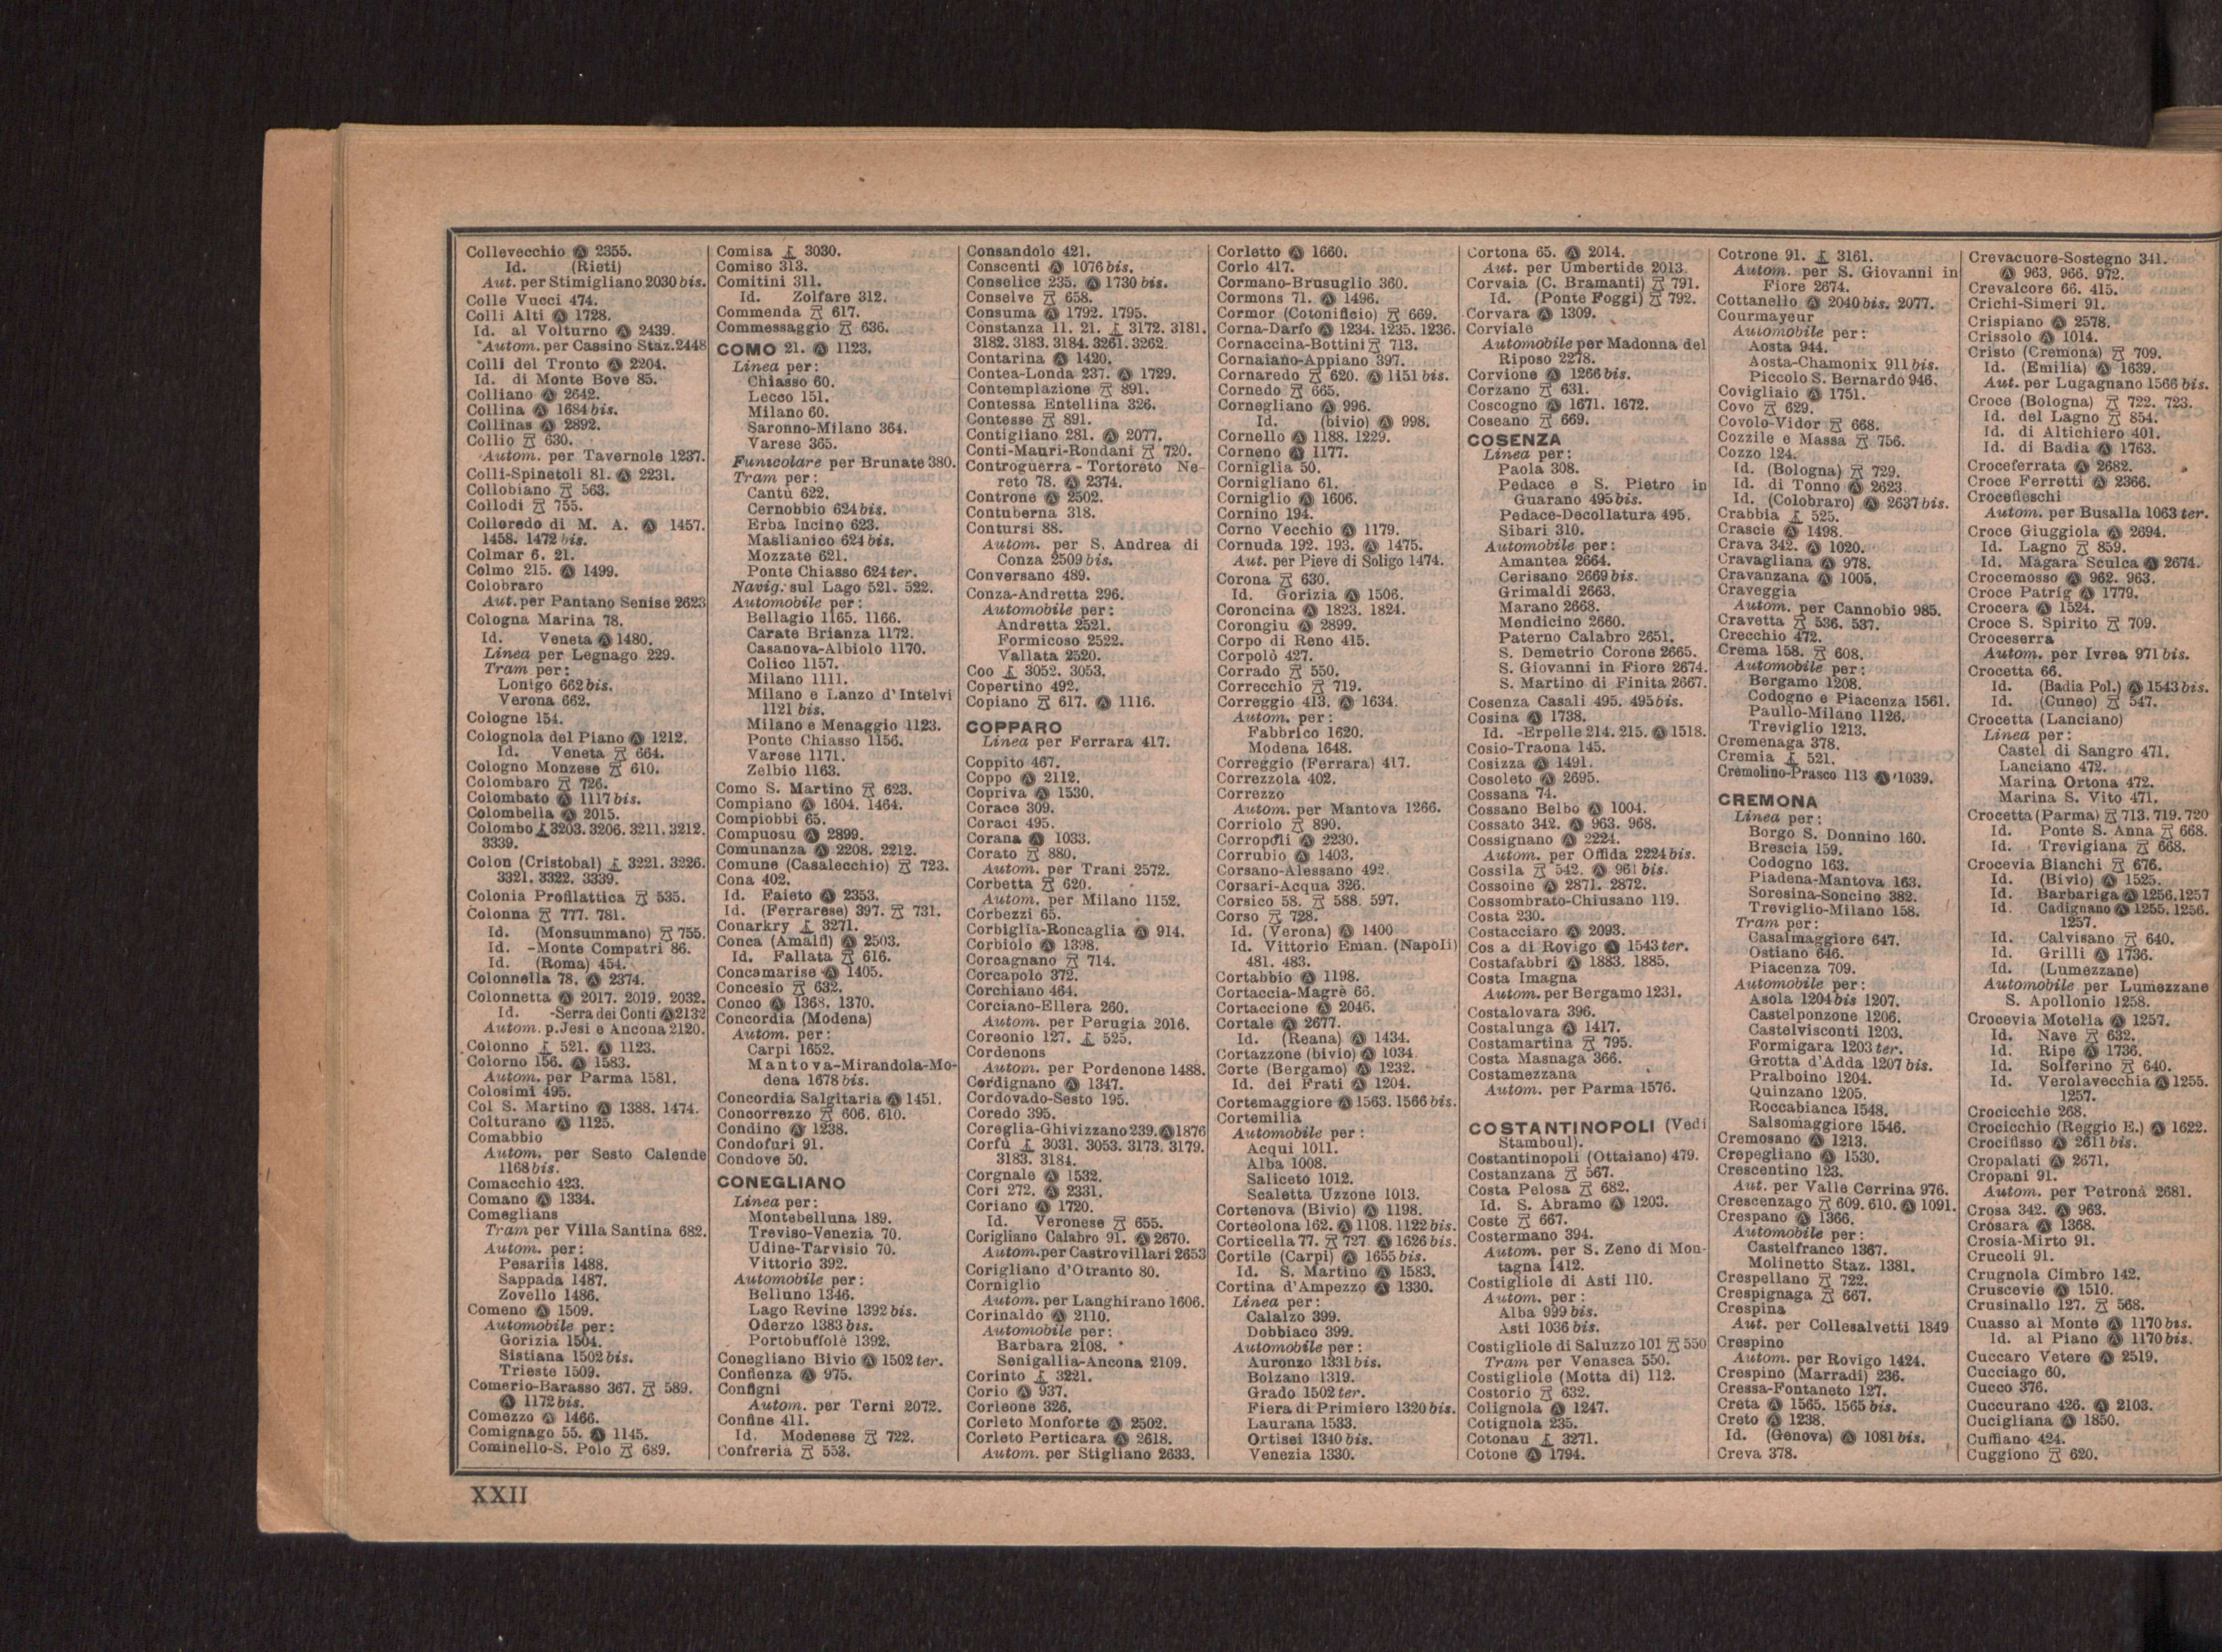 Collevecchio Ⓐ 2355.
Id. (Rieti)
Aut. per Stimigliano 2030 bis.
Colle Vucci 474.
Colli Alti Ⓐ 1728.
Id. al Volturno Ⓐ 2439.
Autom. per Cassino Staz. 2448
Colli del Tronto Ⓐ 2204.
Id. di Monte Bove 85.
Colliano Ⓐ 2642.
Collina Ⓐ 1684 bis.
Collinas Ⓐ 2892.
Collio 630.
Autom. per Tavernole 1237.
Colli-Spinetoli 81. Ⓐ 2231.
Collobiano 563.
Collodi 755.
Colloredo di M. A. Ⓐ 1457.
1458. 1472 bis.
Colmar 6. 21.
Colmo 215. Ⓐ 1499.
Colobraro
Aut. per Pantano Senise 2623
Cologna Marina 78.
Id. Veneta Ⓐ 1480.
Linea per Legnago 229.
Tram per:
Lonigo 662 bis.
Verona 662.
Cologne 154.
Colognola del Piano Ⓐ 1212.
Id. Veneta 664.
Cologno Monzese 610.
Colombaro 726.
Colombato Ⓐ 1117 bis.
Colombella Ⓐ 2015.
Colombo 3203. 3206. 3211. 3212.
3339.
Colon (Cristobal) 3221. 3226.
3321. 3322. 3339.
Colonia Profilattica 535.
Colonna 777. 781.
Id. (Monsummano) 755.
Id. -Monte Compatri 86.
Id. (Roma) 454.
Colonnella 78. Ⓐ 2374.
Colonnetta Ⓐ 2017. 2019. 2032.
Id. -Serra dei Conti Ⓐ 2132
Autom. p. Jesi e Ancona 2120.
Colonno 521. Ⓐ 1123.
Colorno 156. Ⓐ 1583.
Autom. per Parma 1581.
Colosimi 495.
Col S. Martino Ⓐ 1388. 1474.
Colturano Ⓐ 1125.
Comabbio
Autom. per Sesto Calende
1168 bis.
Comacchio 423.
Comano Ⓐ 1334.
Comeglians
Tram per Villa Santina 682.
Autom. per:
Pesariis 1488.
Sappada 1487.
Zovello 1486.
Comeno Ⓐ 1509.
Automobile per:
Gorizia 1504.
Sistiana 1502 bis.
Trieste 1509.
Comerio-Barasso 367. 589.
Ⓐ 1172 bis.
Comezzo Ⓐ 1466.
Comignago 55. Ⓐ 1145.
Cominello-S. Polo 689.
Comisa 3030.
Comiso 313.
Comitini 311.
Id. Zolfare 312.
Commenda 617.
Commessaggio 636.
COMO 21. Ⓐ 1123.
Linea per:
Chiasso 60.
Lecco 151.
Milano 60.
Saronno-Milano 364.
Varese 365.
Funicolare per Brunate 380.
Tram per:
Cantù 622.
Cernobbio 624 bis.
Erba Incino 623.
Maslianico 624 bis.
Mozzate 621.
Ponte Chiasso 624 ter.
Navig. sul Lago 521. 522.
Automobile per:
Bellagio 1165. 1166.
Carate Brianza 1172.
Casanova-Albiolo 1170.
Colico 1157.
Milano 1111.
Milano e Lanzo d'Intelvi
1121 bis.
Milano e Menaggio 1123.
Ponte Chiasso 1156.
Varese 1171.
Zelbio 1163.
Como S. Martino 623.
Compiano Ⓐ 1604. 1464.
Compiobbi 65.
Compuosu Ⓐ 2899.
Comunanza Ⓐ 2208. 2212.
Comune (Casalecchio) 723.
Cona 402.
Id. Faieto Ⓐ 2353.
Id. (Ferrarese) 397. 731.
Conarkry 3271.
Conca (Amalfi) Ⓐ 2503.
Id. Fallata 616.
Concamarise Ⓐ 1405.
Concesio 632.
Conco Ⓐ 1368. 1370.
Concordia (Modena)
Autom. per:
Carpi 1652.
Mantova-Mirandola-Mo-
dena 1678 bis.
Concordia Salgitaria Ⓐ 1451.
Concorrezzo 606. 610.
Condino Ⓐ 1238.
Condofuri 91.
Condove 50.
CONEGLIANO
Linea per:
Montebelluna 189.
Treviso-Venezia 70.
Udine-Tarvisio 70.
Vittorio 392.
Automobile per:
Belluno 1346.
Lago Revine 1392 bis.
Oderzo 1383 bis.
Portobuffolè 1392.
Conegliano Bivio Ⓐ 1502 ter.
Confienza Ⓐ 975.
Configni
Autom. per Terni 2072.
Confine 411.
Id. Modenese 722.
Confreria 553.
Consandolo 421.
Conscenti Ⓐ 1076 bis.
Conselice 235. Ⓐ 1730 bis.
Conselve 658.
Consuma Ⓐ 1792. 1795.
Constanza 11. 21. 3172. 3181.
3182. 3183. 3184. 3261. 3262.
Contarina Ⓐ 1420.
Contea-Londa 237. Ⓐ 1729.
Contemplazione 891.
Contessa Entellina 326.
Contesse 891.
Contigliano 281. Ⓐ 2077.
Conti-Mauri-Rondani 720.
Controguerra - Tortoreto Ne-
reto 78. Ⓐ 2374.
Controne Ⓐ 2502.
Contuberna 318.
Contursi 88.
Autom. per S. Andrea di
Conza 2509 bis.
Conversano 489.
Conza-Andretta 296.
Automobile per:
Andretta 2521.
Formicoso 2522.
Vallata 2520.
Coo 3052. 3053.
Copertino 492.
Copiano 617. Ⓐ 1116.
COPPARO
Linea per Ferrara 417.
Coppito 467.
Coppo Ⓐ 2112.
Copriva Ⓐ 1530.
Corace 309.
Coraci 495.
Corana Ⓐ 1033.
Corato 880.
Autom. per Trani 2572.
Corbetta 620.
Autom. per Milano 1152.
Corbezzi 65.
Corbiglia-Roncaglia Ⓐ 914.
Corbiolo Ⓐ 1398.
Corcagnano 714.
Corcapolo 372.
Corchiano 464.
Corciano-Ellera 260.
Autom. per Perugia 2016.
Corconio 127. 525.
Cordenons
Autom. per Pordenone 1488.
Cordignano Ⓐ 1347.
Cordovado-Sesto 195.
Coredo 395.
Coreglia-Ghivizzano 239. Ⓐ 1876
Corfù 3031. 3053. 3173. 3179.
3183. 3184.
Corgnale Ⓐ 1532.
Cori 272. Ⓐ 2331.
Coriano Ⓐ 1720.
Id. Veronese 655.
Corigliano Calabro 91. Ⓐ 2670.
Autom. per Castrovillari 2653
Corigliano d'Otranto 80.
Corniglio
Autom. per Langhirano 1606.
Corinaldo Ⓐ 2110.
Automobile per:
Barbara 2108.
Senigallia-Ancona 2109.
Corinto 3221.
Corio Ⓐ 937.
Corleone 326.
Corleto Monforte Ⓐ 2502.
Corleto Perticara Ⓐ 2618.
Autom. per Stigliano 2633.
Corletto Ⓐ 1660.
Corlo 417.
Cormano-Brusuglio 360.
Cormons 71. Ⓐ 1496.
Cormor (Cotonificio) 669.
Corna-Darfo Ⓐ 1234. 1235. 1236.
Cornaccina-Bottini 713.
Cornaiano-Appiano 397.
Cornaredo 620. Ⓐ 1151 bis.
Cornedo 665.
Cornegliano Ⓐ 996.
Id. (bivio) Ⓐ 998.
Cornello Ⓐ 1188. 1229.
Corneno Ⓐ 1177.
Corniglia 50.
Cornigliano 61.
Corniglio Ⓐ 1606.
Cornino 194.
Corno Vecchio Ⓐ 1179.
Cornuda 192. 193. Ⓐ 1475.
Aut. per Pieve di Soligo 1474.
Corona 630.
Id. Gorizia Ⓐ 1506.
Coroncina Ⓐ 1823. 1824.
Corongiu Ⓐ 2899.
Corpo di Reno 415.
Corpolò 427.
Corrado 550.
Correcchio 719.
Correggio 413. Ⓐ 1634.
Autom. per:
Fabbrico 1620.
Modena 1648.
Correggio (Ferrara) 417.
Correzzola 402.
Correzzo
Autom. per Mantova 1266.
Corriolo 890.
Corropoli Ⓐ 2230.
Corrubio Ⓐ 1403.
Corsano-Alessano 492.
Corsari-Acqua 326.
Corsico 58. 588. 597.
Corso 728.
Id. (Verona) Ⓐ 1400
Id. Vittorio Eman. (Napoli)
481. 483.
Cortabbio Ⓐ 1198.
Cortaccia-Magrè 66.
Cortaccione Ⓐ 2046.
Cortale Ⓐ 2677.
Id. (Reana) Ⓐ 1434.
Cortazzone (bivio) Ⓐ 1034.
Corte (Bergamo) Ⓐ 1232.
Id. dei Frati Ⓐ 1204.
Cortemaggiore Ⓐ 1563. 1566 bis.
Cortemilia
Automobile per:
Acqui 1011.
Alba 1008.
Saliceto 1012.
Scaletta Uzzone 1013.
Cortenova (Bivio) Ⓐ 1198.
Corteolona 162. Ⓐ 1108. 1122 bis.
Corticella 77. 727. Ⓐ 1626 bis.
Cortile (Carpi) Ⓐ 1655 bis.
Id. S. Martino Ⓐ 1583.
Cortina d'Ampezzo Ⓐ 1330.
Linea per:
Calalzo 399.
Dobbiaco 399.
Automobile per:
Auronzo 1331 bis.
Bolzano 1319.
Grado 1502 ter.
Fiera di Primiero 1320 bis.
Laurana 1533.
Ortisei 1340 bis.
Venezia 1330.
Cortona 65. Ⓐ 2014.
Aut. per Umbertide 2013.
Corvaia (C. Bramanti) 791.
Id. (Ponte Foggi) 792.
Corvara Ⓐ 1309.
Corviale
Automobile per Madonna del
Riposo 2278.
Corvione Ⓐ 1266 bis.
Corzano 631.
Coscogno Ⓐ 1671. 1672.
Coseano 669.
COSENZA
Linea per:
Paola 308.
Pedace e S. Pietro in
Guarano 495 bis.
Pedace-Decollatura 495.
Sibari 310.
Automobile per:
Amantea 2664.
Cerisano 2669 bis.
Grimaldi 2663.
Marano 2668.
Mendicino 2660.
Paterno Calabro 2651.
S. Demetrio Corone 2665.
S. Giovanni in Fiore 2674.
S. Martino di Finita 2667.
Cosenza Casali 495. 495 bis.
Cosina Ⓐ 1738.
Id. -Erpelle 214. 215. Ⓐ 1518.
Cosio-Traona 145.
Cosizza Ⓐ 1491.
Cosoleto Ⓐ 2695.
Cossana 74.
Cossano Belbo Ⓐ 1004.
Cossato 342. Ⓐ 963. 968.
Cossignano Ⓐ 2224.
Autom. per Offida 2224 bis.
Cossila 542. Ⓐ 961 bis.
Cossoine Ⓐ 2871. 2872.
Cossombrato-Chiusano 119.
Costa 230.
Costacciaro Ⓐ 2093.
Cos a di Rovigo Ⓐ 1543 ter.
Costafabbri Ⓐ 1883. 1885.
Costa Imagna
Autom. per Bergamo 1231.
Costalovara 396.
Costalunga Ⓐ 1417.
Costamartina 795.
Costa Masnaga 366.
Costamezzana
Autom. per Parma 1576.
COSTANTINOPOLI (Vedi
Stamboul).
Costantinopoli (Ottaiano) 479.
Costanzana 567.
Costa Pelosa 682.
Id. S. Abramo Ⓐ 1203.
Coste 667.
Costermano 394.
Autom. per S. Zeno di Mon-
tagna 1412.
Costigliole di Asti 110.
Autom. per:
Alba 999 bis.
Asti 1036 bis.
Costigliole di Saluzzo 101 550
Tram per Venasca 550.
Costigliole (Motta di) 112.
Costorio 632.
Colignola Ⓐ 1247.
Cotignola 235.
Cotonau 3271.
Cotone Ⓐ 1794.
Cotrone 91. 3161.
Autom. per S. Giovanni in
Fiore 2674.
Cottanello Ⓐ 2040 bis. 2077.
Courmayeur
Automobile per:
Aosta 944.
Aosta-Chamonix 911 bis.
Piccolo S. Bernardo 946.
Covigliaio Ⓐ 1751.
Covo 629.
Covolo-Vidor 668.
Cozzile e Massa 756.
Cozzo 124.
Id. (Bologna) 729.
Id. di Tonno Ⓐ 2623
Id. (Colobraro) Ⓐ 2637 bis.
Crabbia 525.
Crascie Ⓐ 1498.
Crava 342. Ⓐ 1020.
Cravagliana Ⓐ 978.
Cravanzana Ⓐ 1005.
Craveggia
Autom. per Cannobio 985.
Cravetta 536. 537.
Crecchio 472.
Crema 158. 608.
Automobile per:
Bergamo 1208.
Codogno e Piacenza 1561.
Paullo-Milano 1126.
Treviglio 1213.
Cremenaga 378.
Cremia 521.
Cremolino-Prasco 113 Ⓐ 1039.
CREMONA
Linea per:
Borgo S. Donnino 160.
Brescia 159.
Codogno 163.
Piadena-Mantova 163.
Soresina-Soncino 382.
Treviglio-Milano 158.
Tram per:
Casalmaggiore 647.
Ostiano 646.
Piacenza 709.
Automobile per:
Asola 1204 bis 1207.
Castelponzone 1206.
Castelvisconti 1203.
Formigara 1203 ter.
Grotta d'Adda 1207 bis.
Pralboino 1204.
Quinzano 1205.
Roccabianca 1548.
Salsomaggiore 1546.
Cremosano Ⓐ 1213.
Crepegliano Ⓐ 1530.
Crescentino 123.
Aut. per Valle Cerrina 976.
Crescenzago 609. 610. Ⓐ 1091.
Crespano Ⓐ 1366.
Automobile per:
Castelfranco 1367.
Molinetto Staz. 1381.
Crespellano 722.
Crespignaga 667.
Crespina
Aut. per Collesalvetti 1849
Crespino
Autom. per Rovigo 1424.
Crespino (Marradi) 236.
Cressa-Fontaneto 127.
Creta Ⓐ 1565. 1565 bis.
Creto Ⓐ 1238.
Id. (Genova) Ⓐ 1081 bis.
Creva 378.
Crevacuore-Sostegno 341.
Ⓐ 963. 966. 972.
Crevalcore 66. 415.
Crichi-Simeri 91.
Crispiano Ⓐ 2578.
Crissolo Ⓐ 1014.
Cristo (Cremona) 709.
Id. (Emilia) Ⓐ 1639.
Aut. per Lugagnano 1566 bis.
Croce (Bologna) 722. 723.
Id. del Lagno 854.
Id. di Altichiero 401.
Id. di Badia Ⓐ 1763.
Croceferrata Ⓐ 2682.
Croce Ferretti Ⓐ 2366.
Crocefieschi
Autom. per Busalla 1063 ter.
Croce Giuggiola Ⓐ 2694.
Id. Lagno 859.
Id. Magara Sculca Ⓐ 2674.
Crocemosso Ⓐ 962. 963.
Croce Patrig Ⓐ 1779.
Crocera Ⓐ 1524.
Croce S. Spirito 709.
Croceserra
Autom. per Ivrea 971 bis.
Crocetta 66.
Id. (Badia Pol.) Ⓐ 1543 bis.
Id. (Cuneo) 547.
Crocetta (Lanciano)
Linea per:
Castel di Sangro 471.
Lanciano 472.
Marina Ortona 472.
Marina S. Vito 471.
Crocetta (Parma) 713. 719. 720
Id. Ponte S. Anna 668.
Id. Trevigiana 668.
Crocevia Bianchi 676.
Id. (Bivio) Ⓐ 1525.
Id. Barbariga Ⓐ 1256. 1257
Id. Cadignano Ⓐ 1255. 1256.
1257.
Id. Calvisano 640.
Id. Grilli Ⓐ 1736.
Id. (Lumezzane)
Automobile per Lumezzane
S. Apollonio 1258.
Crocevia Motella Ⓐ 1257.
Id. Nave 632.
Id. Ripe Ⓐ 1736.
Id. Solferino 640.
Id. Verolavecchia Ⓐ 1255.
1257.
Crocicchie 268.
Crocicchio (Reggio E.) Ⓐ 1622.
Crocifisso Ⓐ 2611 bis.
Cropalati Ⓐ 2671.
Cropani 91.
Autom. per Petronà 2681.
Crosa 342. Ⓐ 963.
Crosara Ⓐ 1368.
Crosia-Mirto 91.
Crucoli 91.
Crugnola Cimbro 142.
Cruscevie Ⓐ 1510.
Crusinallo 127. 568.
Cuasso al Monte Ⓐ 1170 bis.
Id. al Piano Ⓐ 1170 bis.
Cuccaro Vetere Ⓐ 2519.
Cucciago 60.
Cucco 376.
Cuccurano 426. Ⓐ 2103.
Cucigliana Ⓐ 1850.
Cuffiano 424.
Cuggiono 620.
XXII